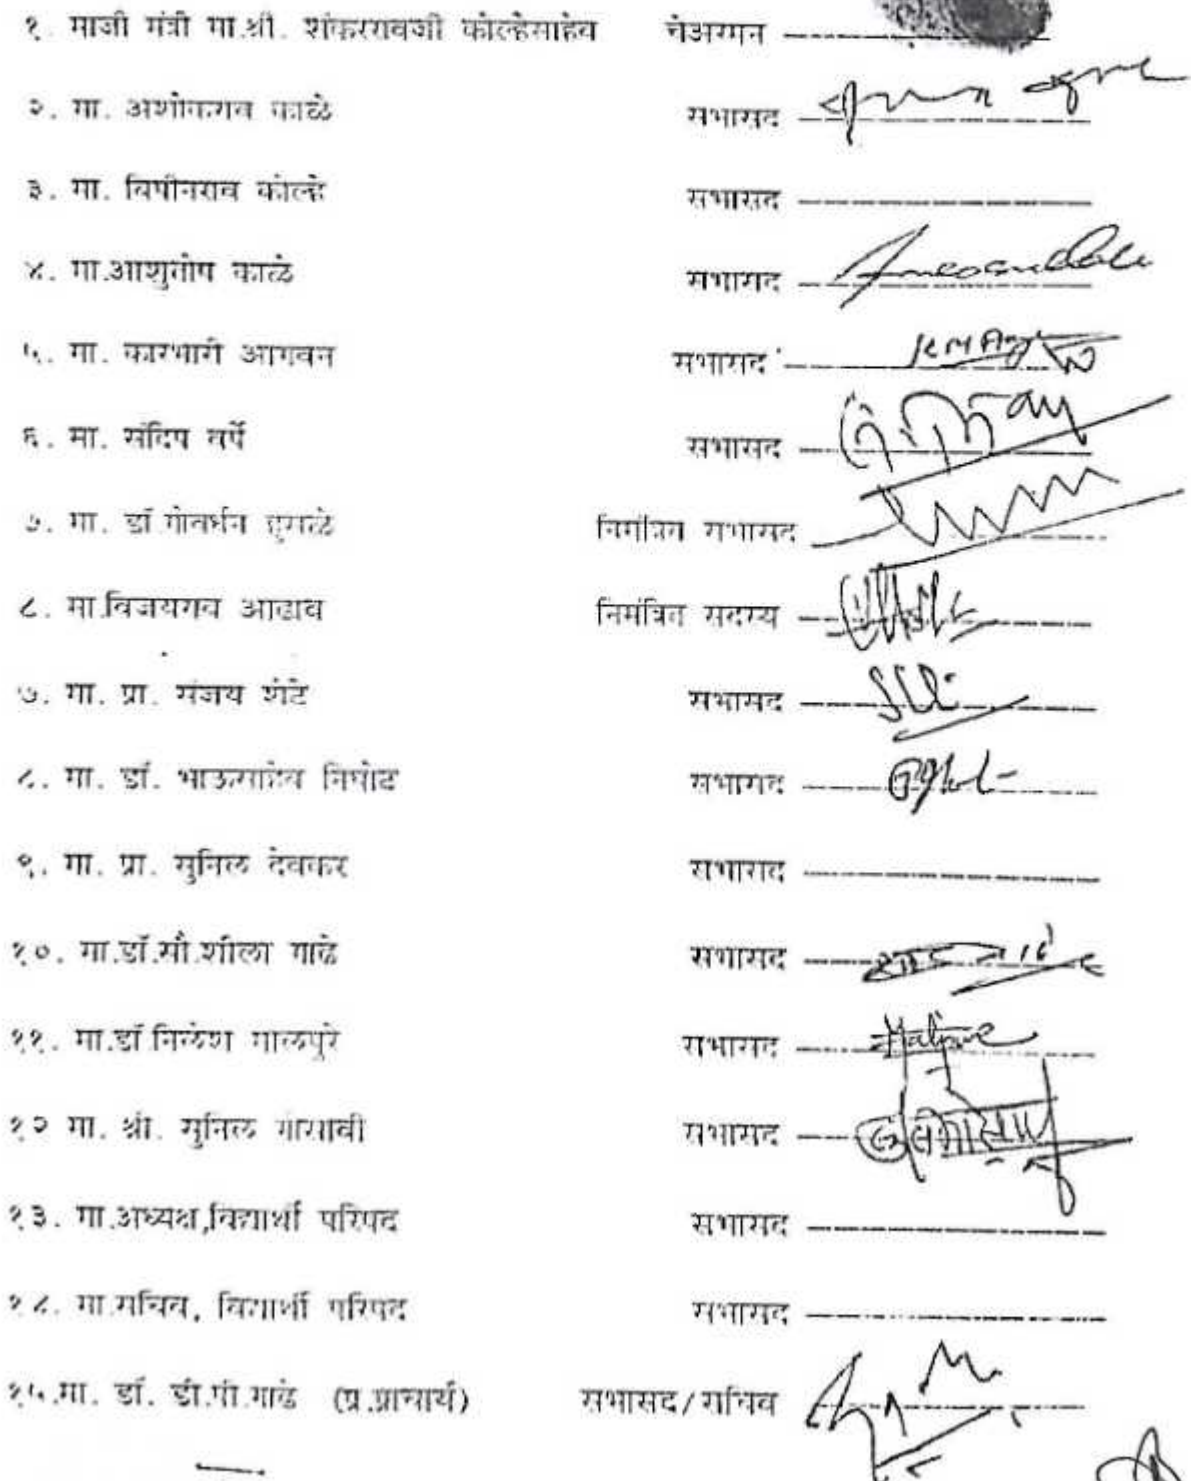 १. माजी मंत्री मा.श्री. शंकररावजी कोल्हेसाहेब चेअरमन
२. मा. अशोकराव काळे सभासद
३. मा. विपीनराव कोल्हे सभासद
४. मा.आशुतोष काळे सभासद
५. मा. कारभारी आगवन सभासद
६. मा. संदिप वर्पे सभासद
७. मा. डॉ.गोवर्धन हुसळे निमंत्रित सभासद
८. मा.विजयराव आढाव निमंत्रित सदस्य
७. मा. प्रा. संजय शेटे सभासद
८. मा. डॉ. भाऊसाहेब निघोट सभासद
९. मा. प्रा. सुनिल देवकर सभासद
१०. मा.डॉ.सौ.शीला गाढे सभासद
११. मा.डॉ.निलेश मालपुरे सभासद Malpure
१२ मा. श्री. सुनिल गोसावी सभासद
१३. मा.अध्यक्ष,विद्यार्थी परिषद सभासद
१४. मा.सचिव, विद्यार्थी परिषद सभासद
१५.मा. डॉ. डी.पी.गाढे (प्र.प्राचार्य) सभासद/सचिव